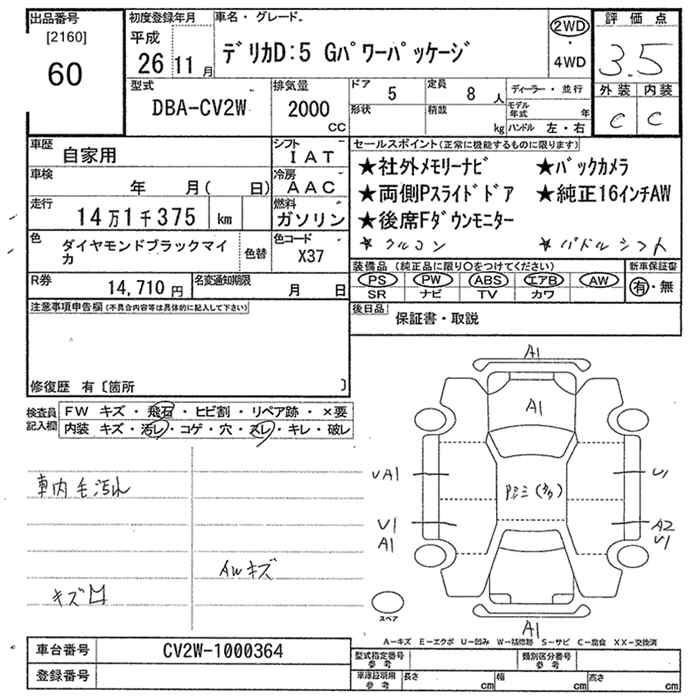 出品番号
[2160]
60
初度登録年月
平成
26年11月
車名・グレード
デリカD:5 Gパワーパッケージ
2WD
・
4WD
評価点
3.5
外装 内装
C C
型式
DBA-CV2W
排気量
2000
CC
ドア
5
定員
8人
形状
積載
kg
ディーラー・並行
モデル年式 年
ハンドル 左・右
車歴
自家用
シフト
IAT
車検
年 月( 日)
冷房
AAC
走行
14万1千375 km
燃料
ガソリン
色
ダイヤモンドブラックマイカ
色替
色コード
X37
R券
14,710円
名変通知期限
月 日
セールスポイント(正常に機能するものに限ります)
★社外メモリーナビ ★バックカメラ
★両側Pスライドドア ★純正16インチAW
★後席Fダウンモニター
★ クルコン ★ パドルシフト
装備品 (純正品に限り○をつけてください)
PS PW ABS エアB AW
SR ナビ TV カワ
新車保証書
有・無
後日品
保証書・取説
注意事項申告欄(不具合内容等は具体的に記入して下さい)
修復歴 有〔箇所 〕
検査員記入欄
FW キズ・飛石・ヒビ割・リペア跡・×要
内装 キズ・汚レ・コゲ・穴・スレ・キレ・破レ
車内毛汚れ
AWキズ
キズ
A1
A1
UA1
U1
U1
A1
A2
U1
A1
スペア
A-キズ E-エクボ U-凹み W-補修跡 S-サビ C-腐食 XX-交換済
車台番号
CV2W-1000364
登録番号
型式指定番号
参考
類別区分番号
参考
車庫証明用
参考
長さ cm
幅 cm
高さ cm